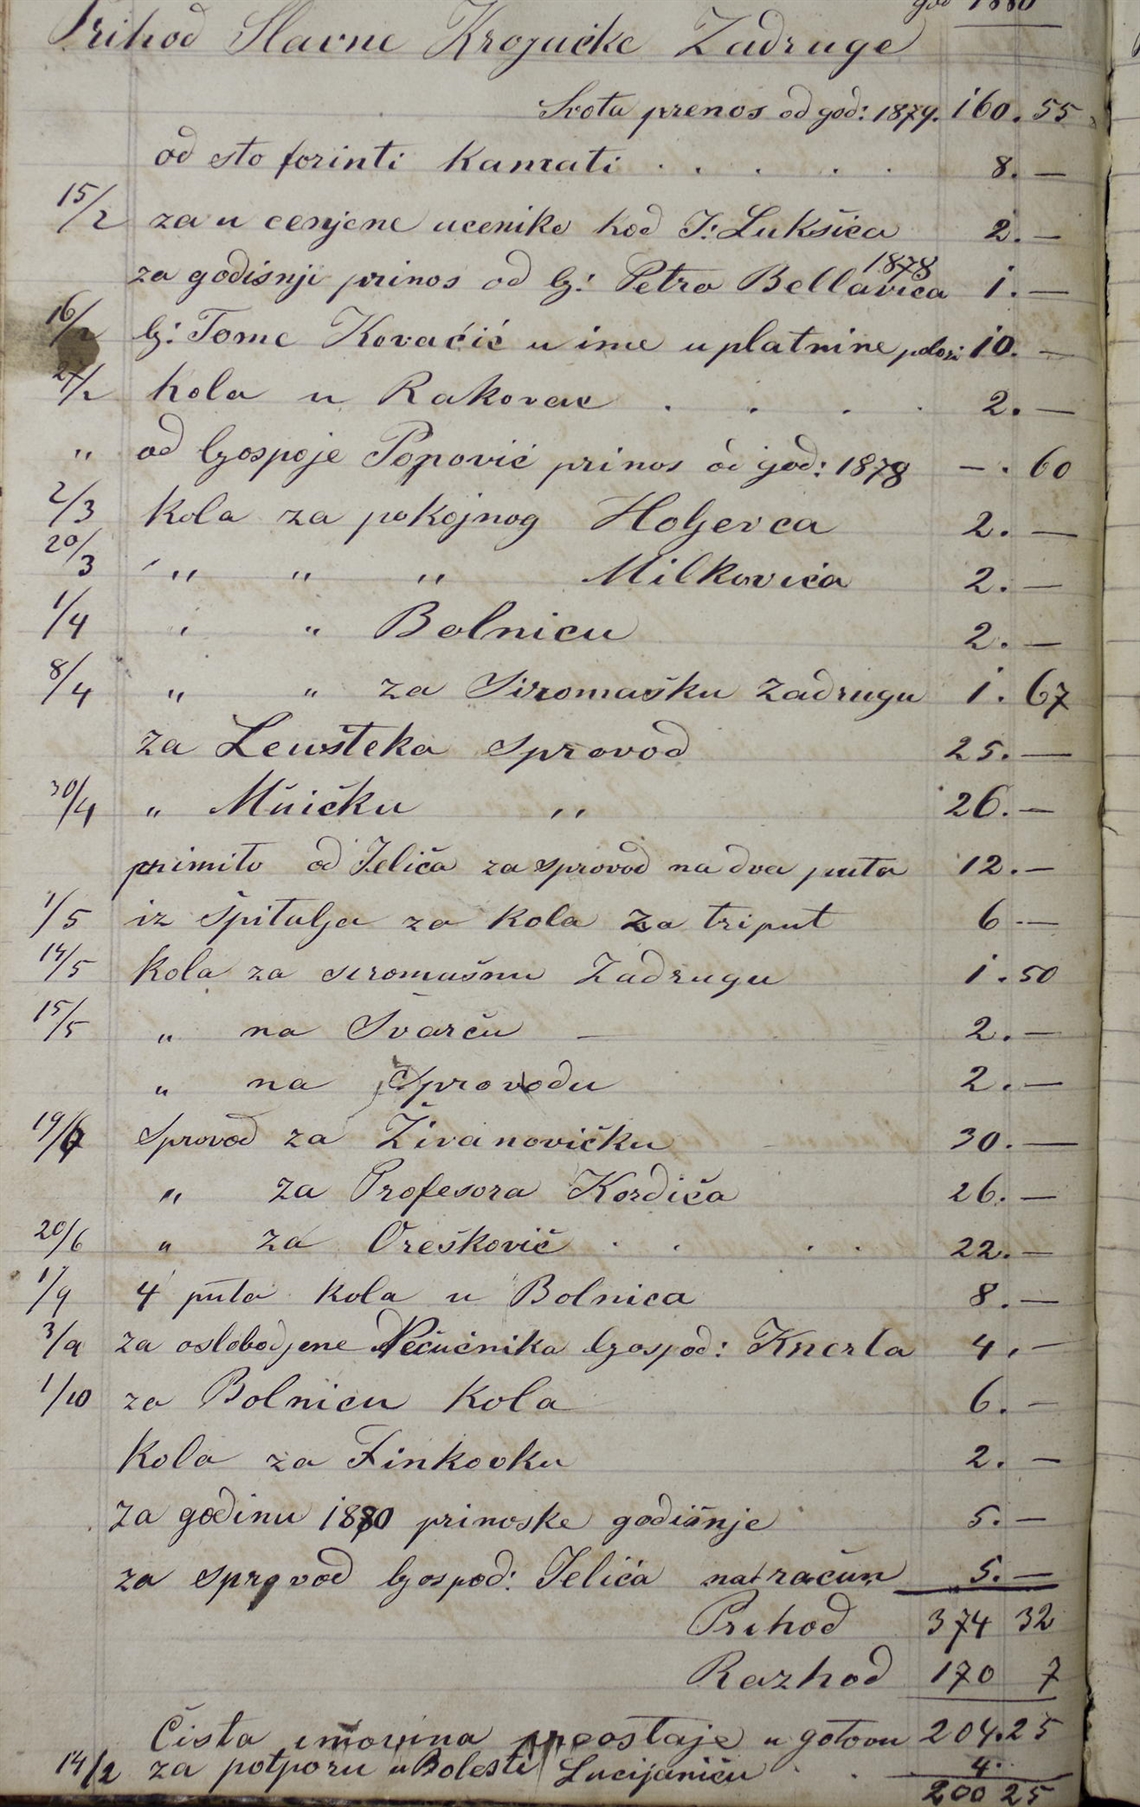 god 1880
Prihod Slavne Krojačke Zadruge
Svota prenos od god: 1879. 160. 55
od sto forinti Kamati . . . . . 8. —
15/2 za u cenjene ucenike kod J: Lukšića 2. —
1878
za godišnji prinos od G: Petra Bellavića 1. —
16/2 G: Tome Kovačić u ime uplatnine položi 10. —
27/2 kola u Rakovac . . . . 2. —
„ od Gospoje Popović prinos od god: 1878 — . 60
2/3 kola za pokojnog Holjevca 2. —
20/3 „ „ „ Milkovića 2. —
1/4 „ „ Bolnicu 2. —
8/4 „ „ za Siromašku Zadrugu 1. 67
za Leušteka Sprovod 25. —
30/4 „ Mšičku „ 26. —
primito od Jeliča za Sprovod na dva puta 12. —
1/5 iz Špitalja za kola za triput 6 —
14/5 kola za siromašnu Zadrugu 1. 50
15/5 „ na Švarču — 2. —
„ na Sprovodu 2. —
19/6 Sprovod za Živanovičku 30. —
„ za Profesora Kordiča 26. —
20/6 „ za Oreškovič . . . . 22. —
1/9 4 puta kola u Bolnica 8. —
3/9 za oslobodjene Nečučnika Gospod: Knerla 4. —
1/10 za Bolnicu Kola 6. —
Kola za Finkovku 2. —
za godinu 1880 prinoske godišnje 5. —
za Sprovod Gospod: Jelića na račun 5. —
Prihod 374 32
Razhod 170 7
Čista imovina preostaje u gotovu 204.25
14/2 za potporu u Bolesti Lucijaniču . . 4.
200 25